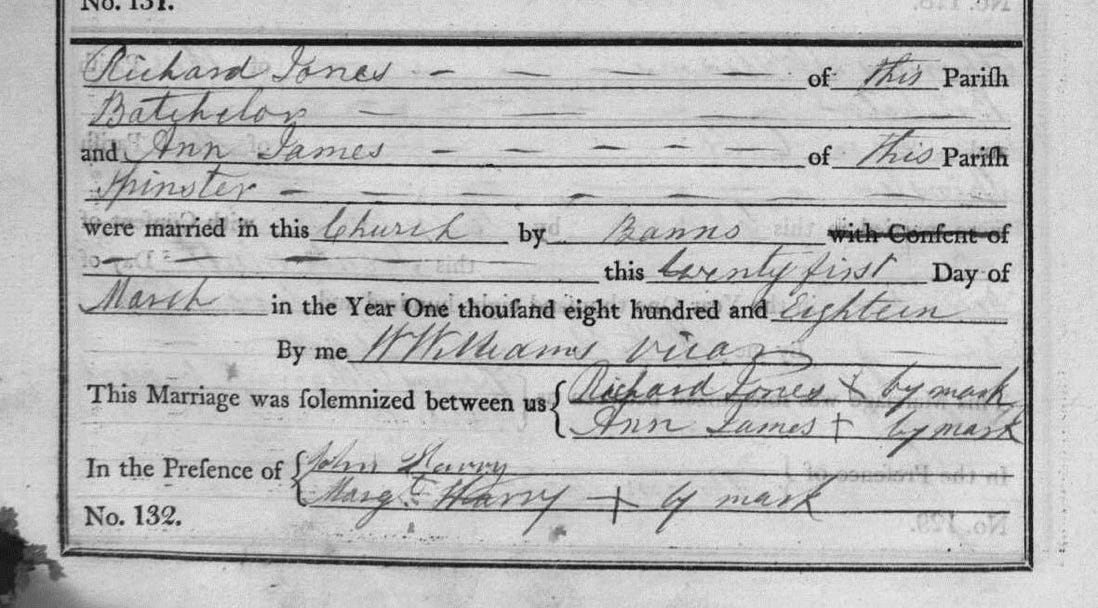 No. 131.
Richard Jones — — — — — of this Pariſh
Batchelor — — — — —
and Ann James — — — — — of this Pariſh
Spinster — — — — — — —
were married in this Church by Banns with Conſent of
— — — — — this twenty first Day of
March in the Year One thouſand eight hundred and Eighteen
By me W Williams Vicar
This Marriage was ſolemnized between us { Richard Jones X by mark
Ann James + by mark
In the Preſence of { John Harry
Margt Harry + by mark
No. 132.